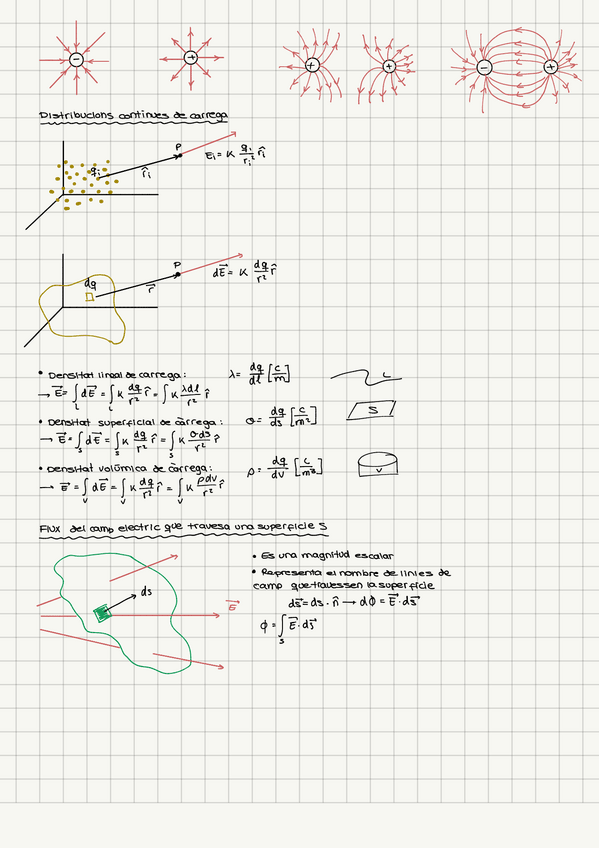 - + + + - +
Distribucions contínues de carrega
P
qᵢ
r̂ᵢ
Eᵢ = K qᵢ/rᵢ² r̂ᵢ
P
dq
r⃗
dE⃗ = K dq/r² r̂
• Densitat lineal de carrega: λ = dq/dl [C/m] L
→ E⃗ = ∫_L dE⃗ = ∫_L K dq/r² r̂ = ∫ K λdl/r² r̂
• Densitat superficial de càrrega: σ = dq/ds [C/m²] S
→ E⃗ = ∫_S dE⃗ = ∫_S K dq/r² r̂ = ∫_S K σ·ds/r² r̂
• Densitat volúmica de càrrega: ρ = dq/dv [C/m³] V
→ E⃗ = ∫_V dE⃗ = ∫_V K dq/r² r̂ = ∫_V K ρdv/r² r̂
Flux del camp electric que travesa una superfície S
ds
E⃗
• Es una magnitud escalar
• Representa el nombre de línies de
camp que travessen la superfície
ds⃗ = ds · n̂ → dϕ = E⃗ · ds⃗
ϕ = ∫_S E⃗ · ds⃗